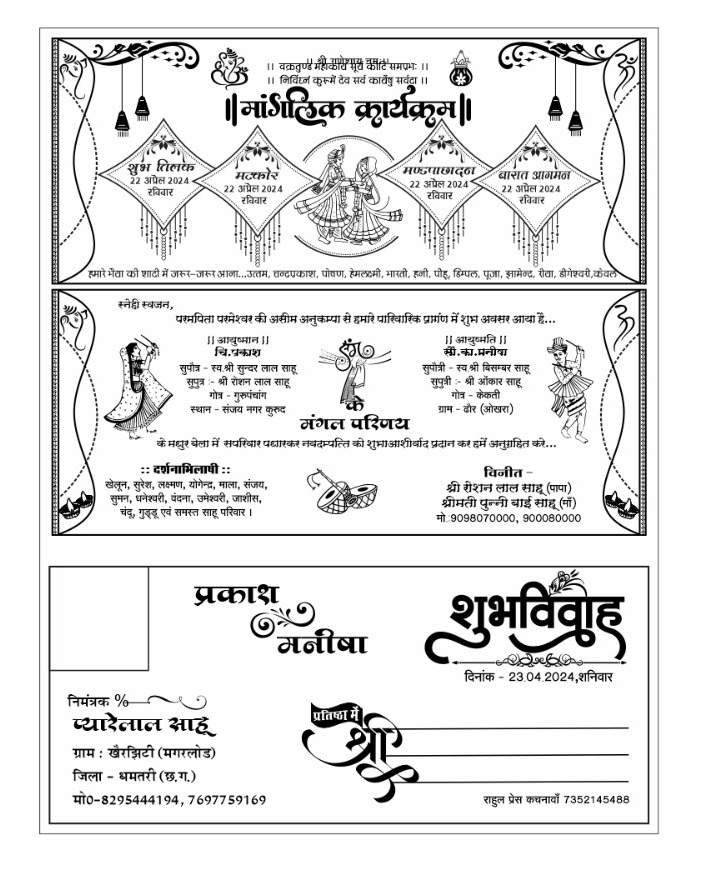 || श्री गणेशाय नमः ||
।। वक्रतुण्ड महाकाय सूर्य कोटि समप्रभः ।।
।। निर्विघ्नं कुरूमें देव सर्व कार्येषु सर्वदा ।।
||मांगलिक कार्यक्रम||
शुभ तिलक
22 अप्रेल 2024
रविवार
मटकोर
22 अप्रेल 2024
रविवार
मण्डपाछादन
22 अप्रेल 2024
रविवार
बारात आगमन
22 अप्रेल 2024
रविवार
हमारे भैया की शादी में जरूर-जरूर आना...उत्तम, चन्द्रप्रकाश, पोषण, हेमलक्ष्मी, भारती, हनी, पीहू, डिम्पल, पूजा, झामेन्द्र, रीना, डीगेश्वरी,केवल
स्नेही स्वजन,
परमपिता परमेश्वर की असीम अनुकम्पा से हमारे पारिवारिक प्रागंण में शुभ अवसर आया है...
|| आयुष्मान ||
चि.प्रकाश
सुपौत्र - स्व.श्री सुन्दर लाल साहू
सुपुत्र :- श्री रोशन लाल साहू
गोत्र - गुरुपंचांग
स्थान - संजय नगर कुरुद
संग
|| आयुष्मति ||
सौ.का.मनीषा
सुपौत्री - स्व.श्री बिसम्बर साहू
सुपुत्री :- श्री ओंकार साहू
गोत्र - केकती
ग्राम - ढौर (ओखरा)
के
मंगल परिणय
के मधुर बेला में सपरिवार पधारकर नवदम्पत्ति को शुभाआशीर्वाद प्रदान कर हमें अनुग्रहित करे...
:: दर्शनाभिलाषी ::
खेलून, सुरेश, लक्ष्मण, योगेन्द्र, माला, संजय,
सुमन, धनेश्वरी, वंदना, उमेश्वरी, जाशीस,
चंदू, गुड्डू एवं समस्त साहू परिवार ।
विनीत -
श्री रोशन लाल साहू (पापा)
श्रीमती पुन्नी बाई साहू (माँ)
मो.:9098070000, 900080000
प्रकाश
मनीषा
शुभविवाह
दिनांक - 23.04.2024,शनिवार
निमंत्रक %
प्यारेलाल साहू
ग्राम : खैरझिटी (मगरलोड)
जिला - धमतरी (छ.ग.)
मो0-8295444194, 7697759169
प्रतिष्ठा में
श्री
राहुल प्रेस कचनावाँ 7352145488